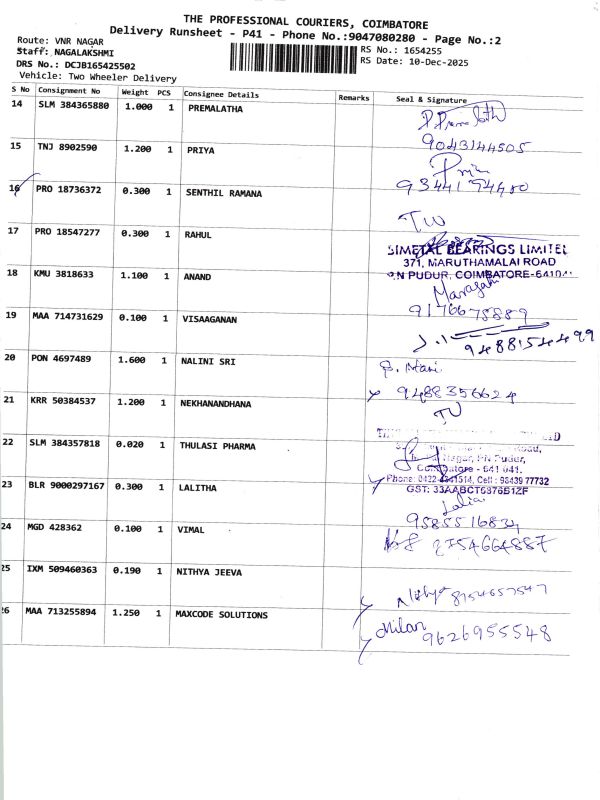 THE PROFESSIONAL COURIERS, COIMBATORE
Delivery Runsheet - P41 - Phone No.:9047080280 - Page No.:2
Route: VNR NAGAR
RS No.: 1654255
Staff: NAGALAKSHMI
RS Date: 10-Dec-2025
DRS No.: DCJB165425502
Vehicle: Two Wheeler Delivery
S No Consignment No Weight PCS Consignee Details Remarks Seal & Signature
14 SLM 384365880 1.000 1 PREMALATHA
9043144505
15 TNJ 8902590 1.200 1 PRIYA
Priya
9344194480
16 PRO 18736372 0.300 1 SENTHIL RAMANA
TW
17 PRO 18547277 0.300 1 RAHUL
BIMETAL BEARINGS LIMITED
371, MARUTHAMALAI ROAD
P.N PUDUR, COIMBATORE-641041
18 KMU 3818633 1.100 1 ANAND
9176675889
19 MAA 714731629 0.100 1 VISAAGANAN
9488154499
20 PON 4697489 1.600 1 NALINI SRI
S. Mari
9488356624
21 KRR 50384537 1.200 1 NEKHANANDHANA
TW
22 SLM 384357818 0.020 1 THULASI PHARMA
Road,
Nagar, PN Pudur,
Coimbatore - 641 041.
Phone: 0422-4341514, Cell : 98439 77732
GST: 33AABCT6376B1ZF
23 BLR 9000297167 0.300 1 LALITHA
Lalia
9585516834
24 MGD 428362 0.100 1 VIMAL
2754664887
25 IXM 509460363 0.190 1 NITHYA JEEVA
Nithya 8754657547
26 MAA 713255894 1.250 1 MAXCODE SOLUTIONS
Milan
9626955548